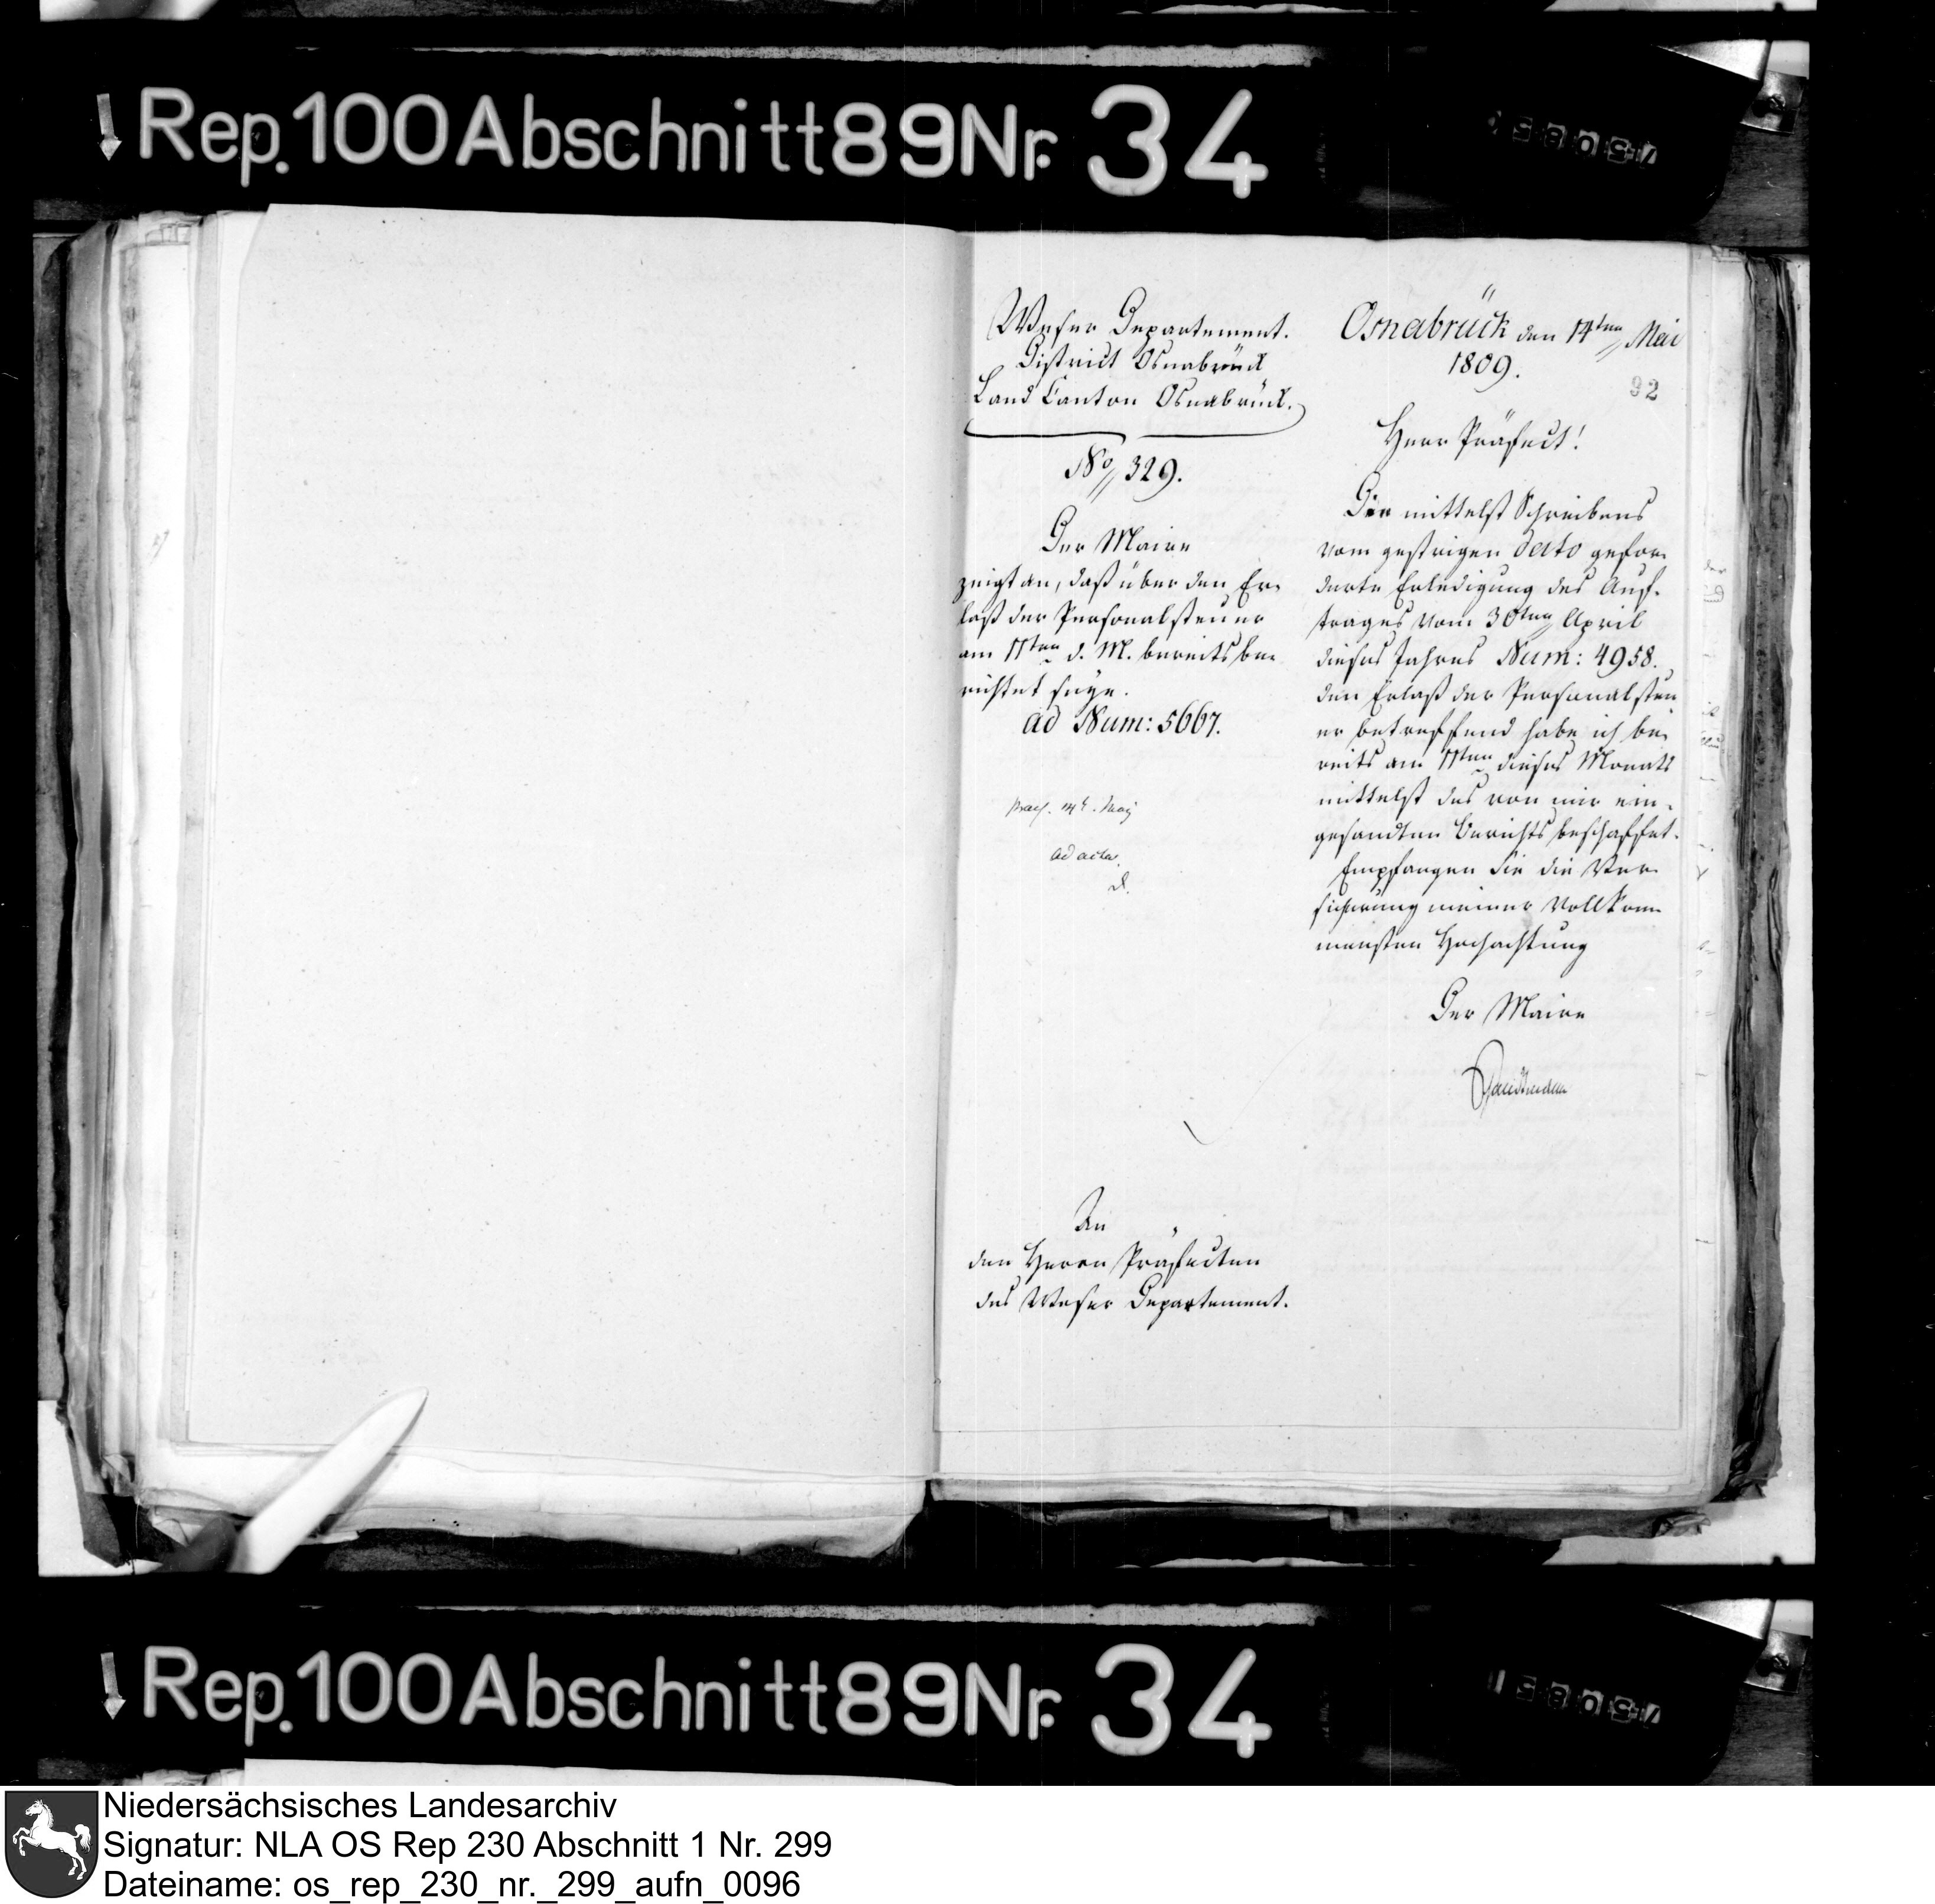 Rep. 100 Abschnitt 89 Nr. 34
Weser Departement.
District Osnabrück
Land Canton Osnabrück.
No 329.
Der Maire
zeigt an, daß über den Er-
laß der Personalsteuer
am 11ten d. M. bereits be-
richtet seye.
ad Num: 5667.
praes. 14t. May
ad acta.
An
den Herrn Präfecten
des Weser Departement.
Osnabrück den 14ten Mai
1809.
92
Herr Präfect!
Die mittelst Schreibens
vom gestrigen Dato gefor-
derte Erledigung des Auf-
trages vom 30ten April
dieses Jahres Num: 4958.
den Erlaß der Personalsteu
er betreffend habe ich be-
reits am 11ten dieses Monats
mittelst des von mir ein-
gesandten Berichts beschaffet.
Empfangen Sie die Ver-
sicherung meiner vollkom-
mensten Hochachtung
Der Maire
Rep. 100 Abschnitt 89 Nr. 34
Niedersächsisches Landesarchiv
Signatur: NLA OS Rep 230 Abschnitt 1 Nr. 299
Dateiname: os_rep_230_nr._299_aufn_0096